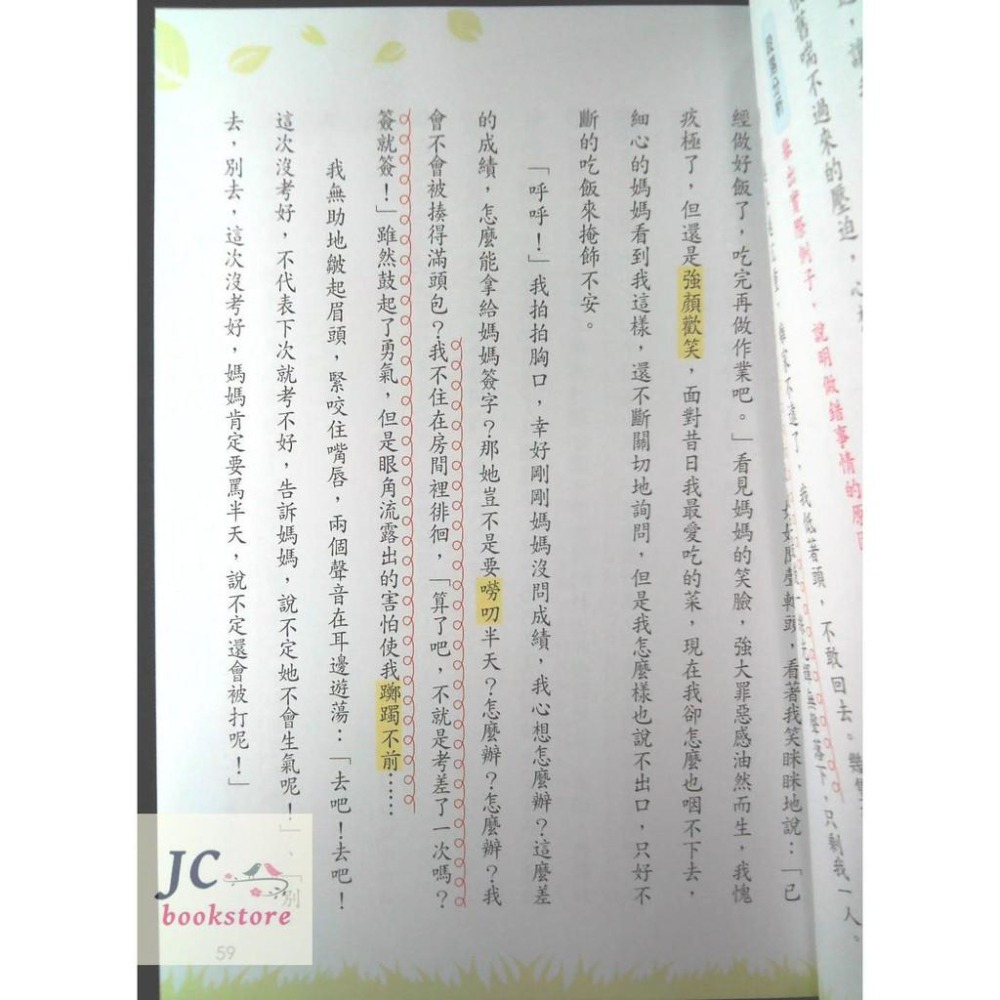 舊喘不過來的壓迫，心
舉出實際例子，說明做錯事情的原因
我低著頭，不敢回去。
看著我笑眯眯地說：「已
經做好飯了，吃完再做作業吧。」看見媽媽的笑臉，強大罪惡感油然而生，我愧
疚極了，但還是強顏歡笑，面對昔日我最愛吃的菜，現在我卻怎麼也咽不下去，
細心的媽媽看到我這樣，還不斷關切地詢問，但是我怎麼樣也說不出口，只好不
斷的吃飯來掩飾不安。
「呼呼！」我拍拍胸口，幸好剛剛媽媽沒問成績，我心想怎麼辦？這麼差
的成績，怎麼能拿給媽媽簽字？那她豈不是要嘮叨半天？怎麼辦？怎麼辦？我
會不會被揍得滿頭包？我不住在房間裡徘徊，「算了吧，不就是考差了一次嗎？
簽就簽！」雖然鼓起了勇氣，但是眼角流露出的害怕使我躑躅不前……
我無助地皺起眉頭，緊咬住嘴唇，兩個聲音在耳邊遊蕩：「去吧！去吧！
這次沒考好，不代表下次就考不好，告訴媽媽，說不定她不會生氣呢！」、「別
去，別去，這次沒考好，媽媽肯定要罵半天，說不定還會被打呢！」
59
JC
bookstore